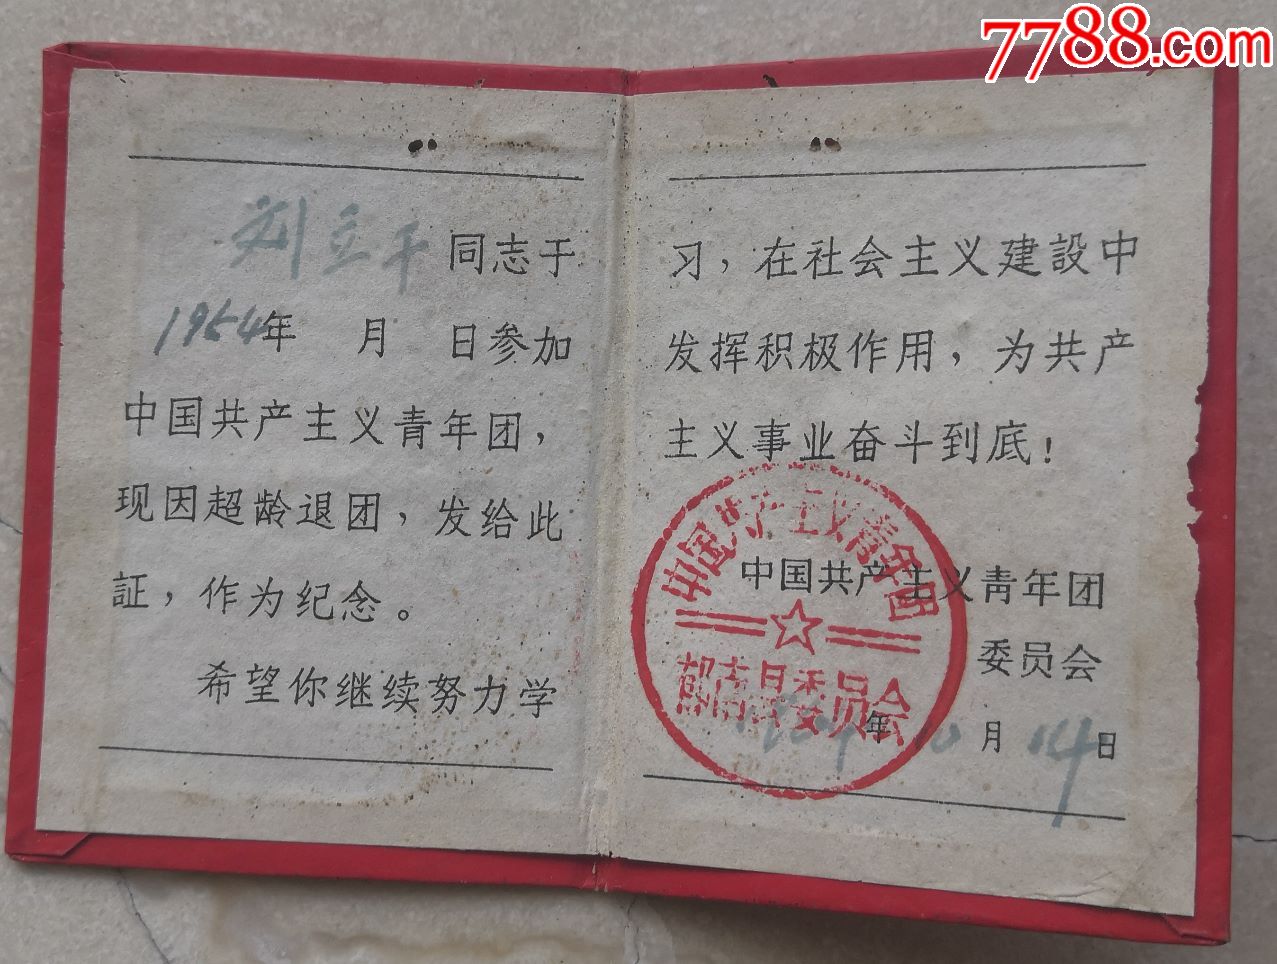 7788.com
刘立平同志于
1964年 月 日参加
中国共产主义青年团，
现因超龄退团，发给此
证，作为纪念。
希望你继续努力学
习，在社会主义建設中
发挥积极作用，为共产
主义事业奋斗到底！
中国共产主义青年团
委员会
年10月14日
中国共产主义青年团
郁南县委员会